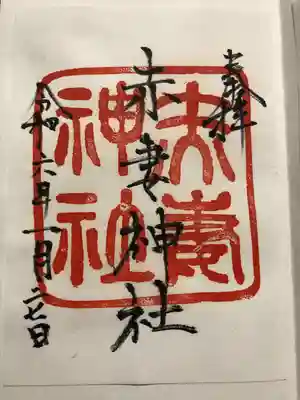 奉拝
赤妻神社
赤妻神社
令和六年一月二七日